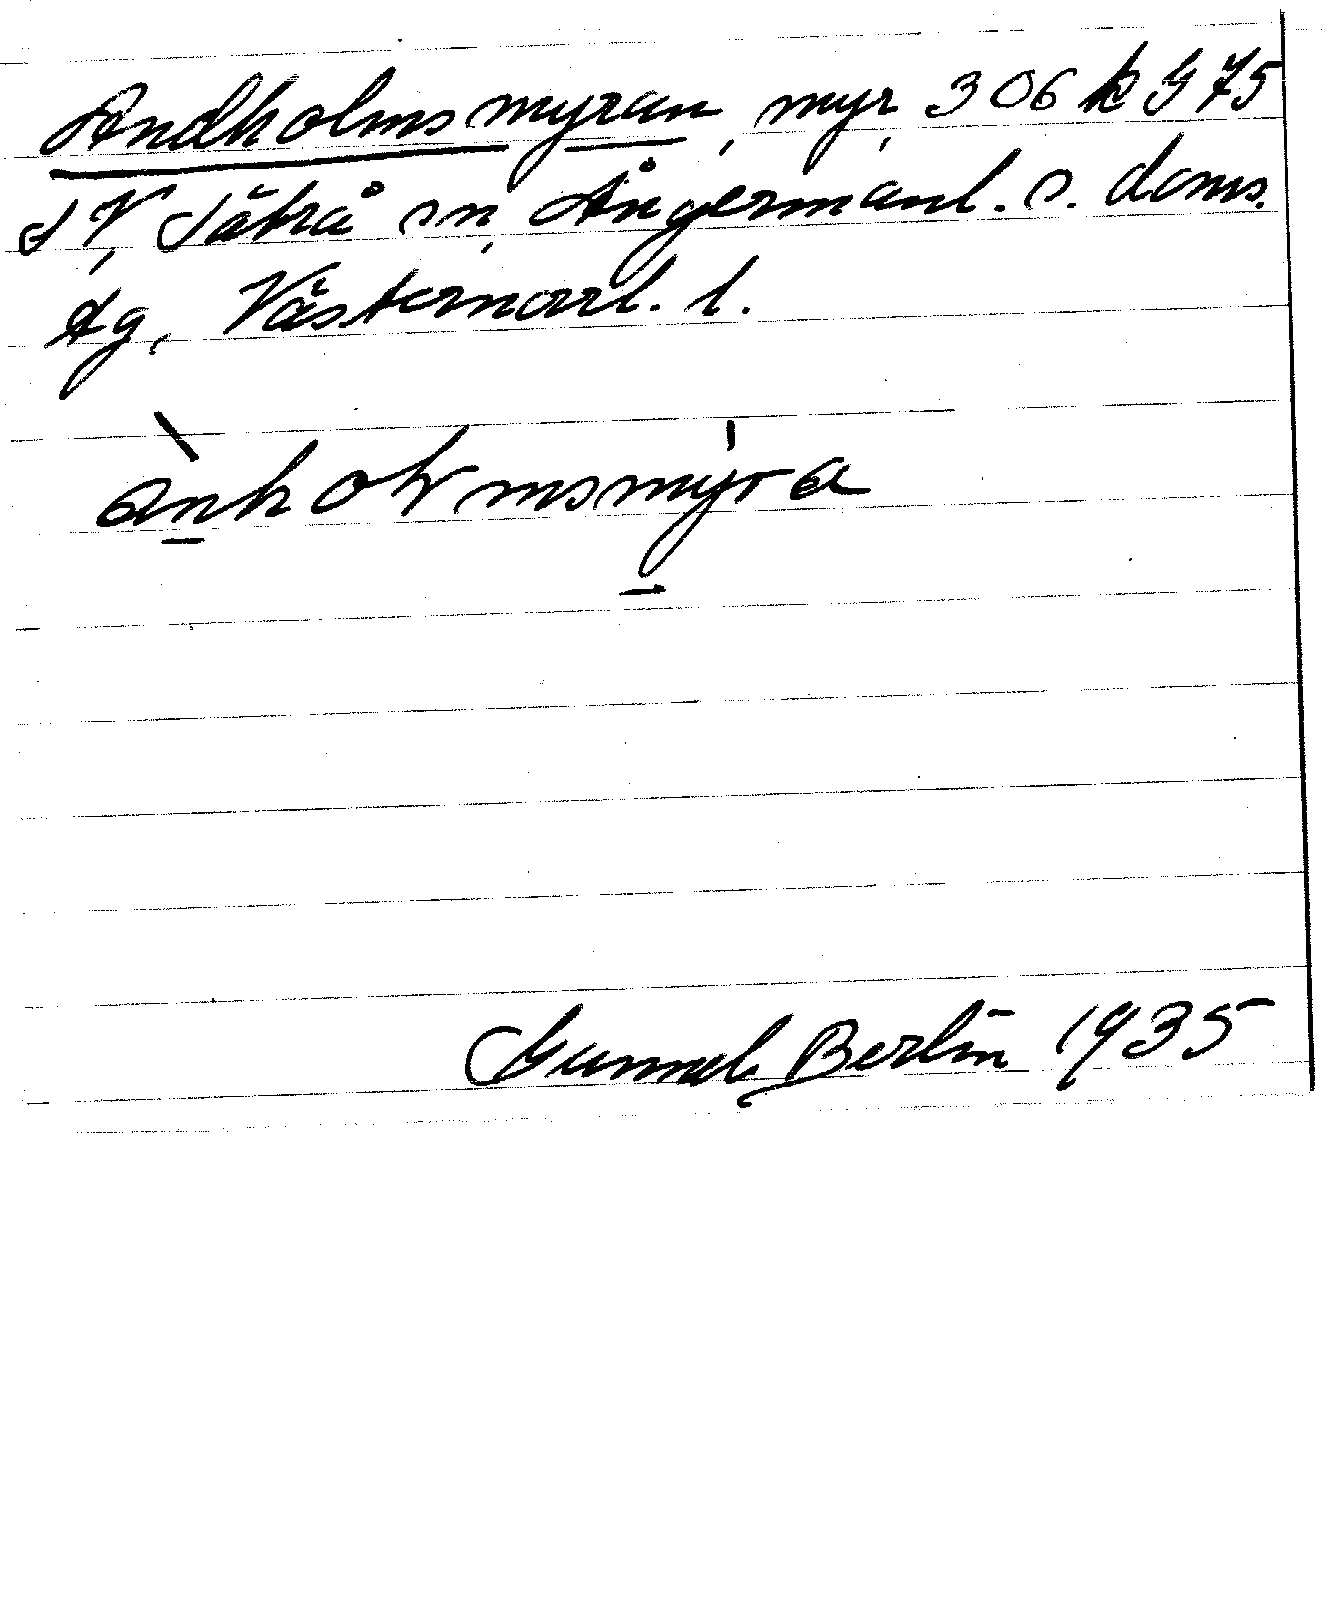 Andholmsmyran, myr, 306 k G 75
S V, Säbrå sn, Ångermanl. s. doms.
Ag, Västernorrl. l.
ànholmsmýra
Gunnel Berlin 1935